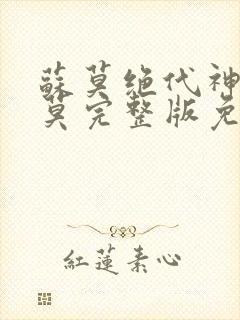 蘇莫绝代神
莫完整版免
紅蓮素心